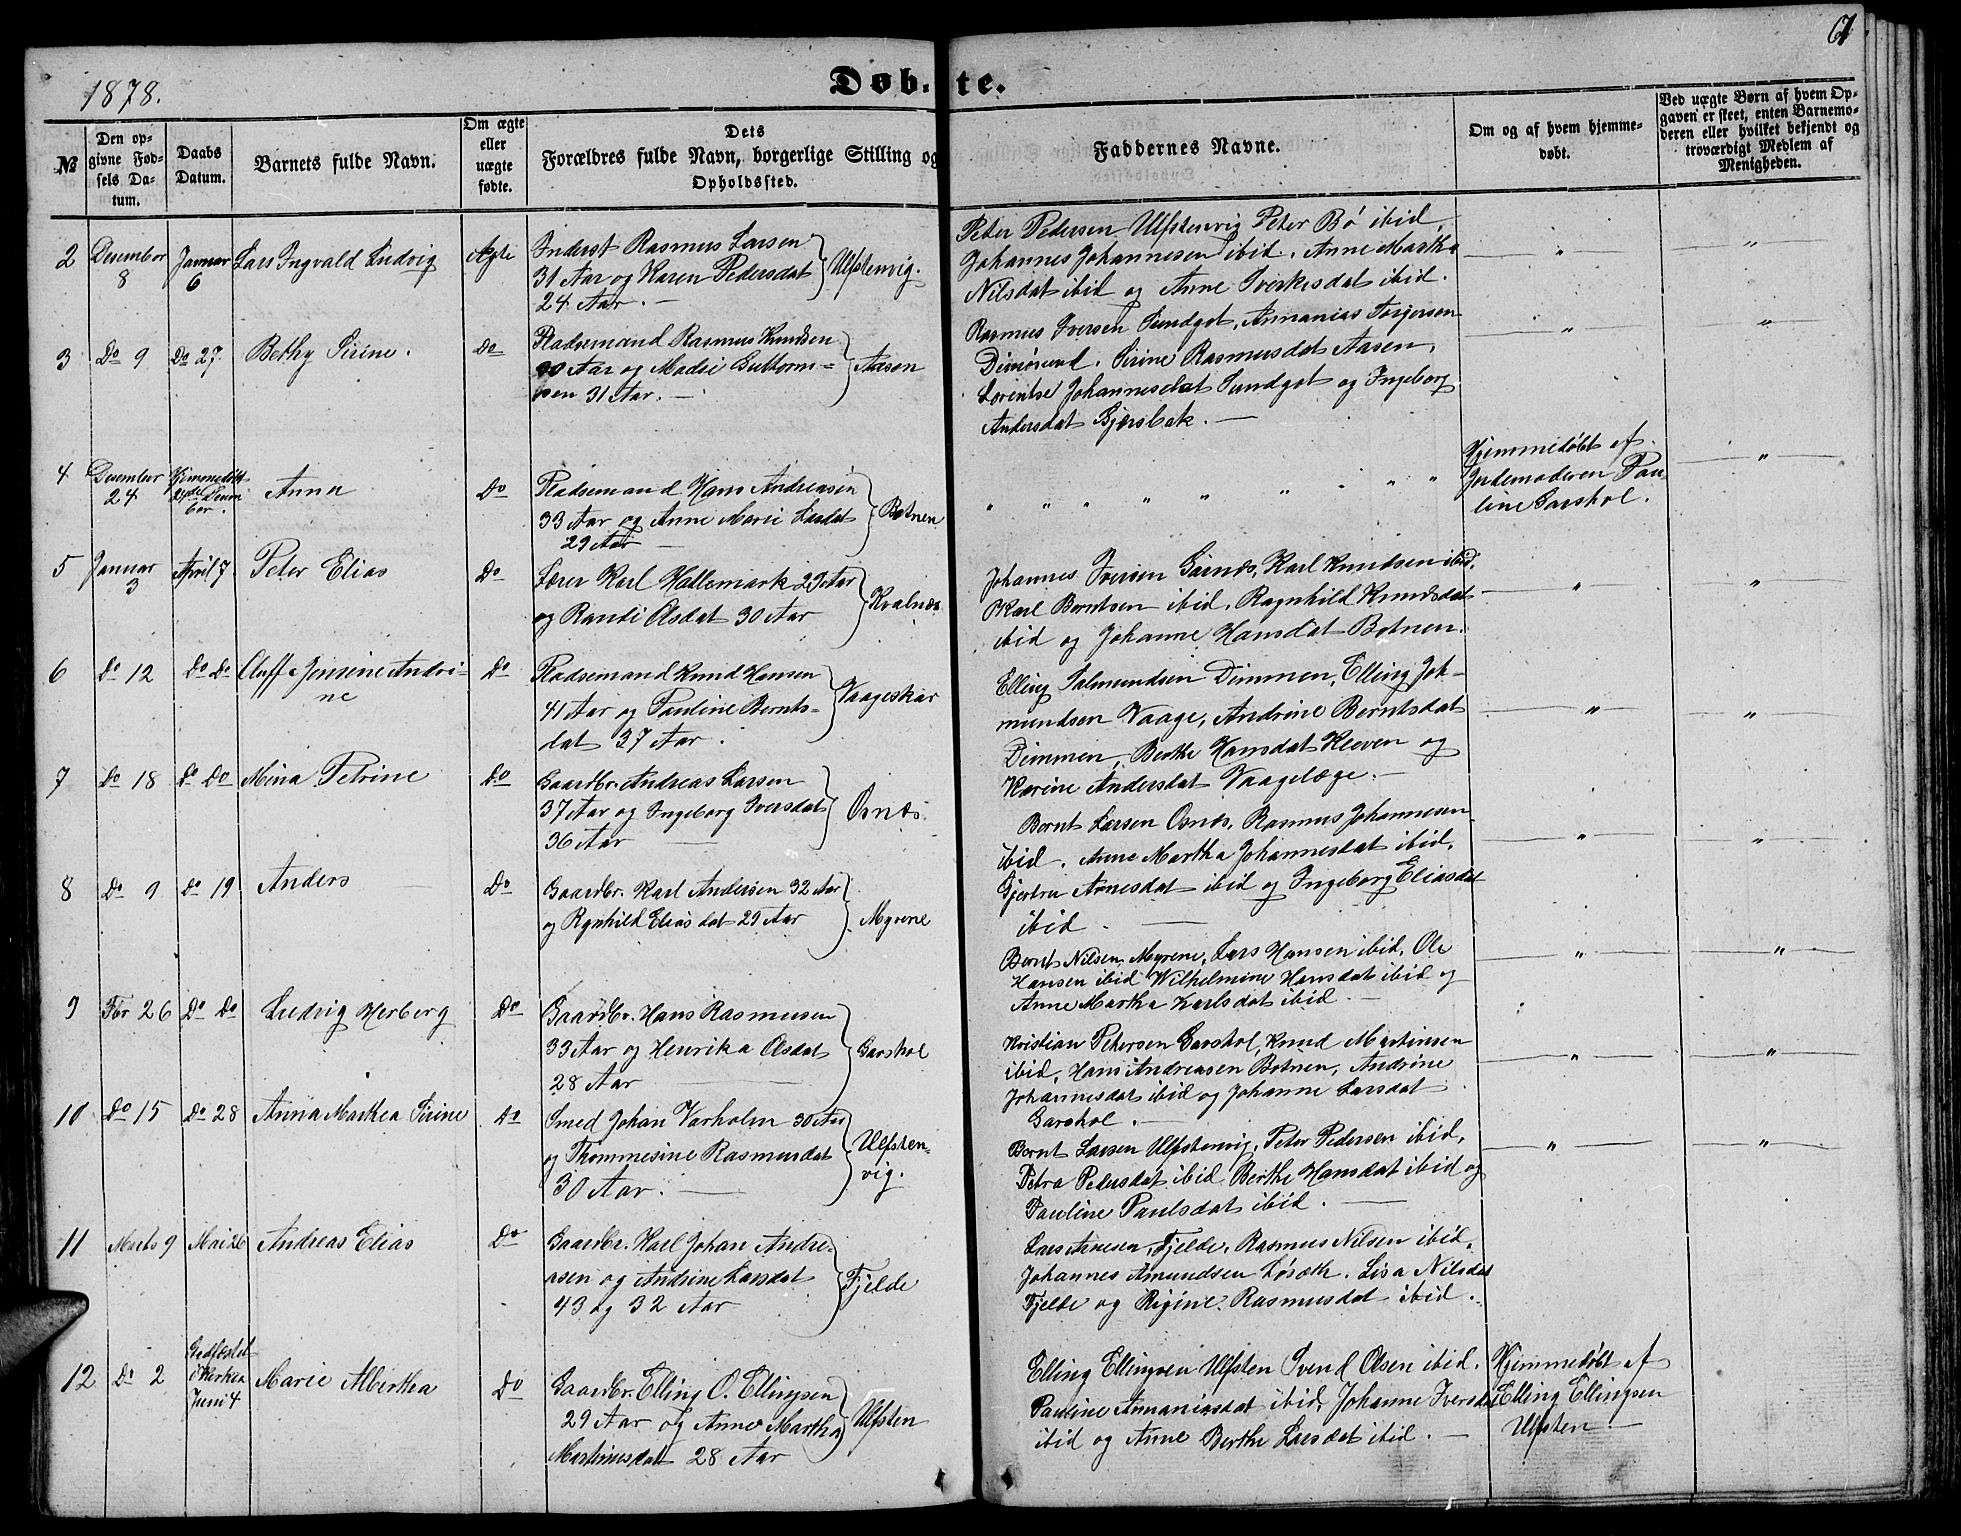 1878.
Døbte.
61
№
Den opgivne Fødsels Datum.
Daabs Datum.
Barnets fulde Navn.
Om ægte eller uægte fødte.
Dets Forældres fulde Navn, borgerlige Stilling og Opholdssted.
Faddernes Navne.
Om og af hvem hjemmedøbt.
Ved uægte Børn af hvem Opgaven er skeet, enten Barnemoderen eller hvilket bekjendt og troværdigt Medlem af Menigheden.
2
Desember 8
Januar 6
Lars Ingvald Ludvig
Ægte
Inderst Rasmus Larsen
31 Aar og Karen Pedersdat
24 Aar. —
Ulfstenvig.
Peter Pedersen Ulfstenvig Peter Bø ibid,
Johannes Johannesen ibid. Anne Martha
Nilsdat ibid og Anne Sverkesdat ibid.
3
Do 9
Do 27
Bethy Sirine.
Do
Pladsemand Rasmus Knudsen
Aar og Madsi Guttorms=
sen 31 Aar. —
Aasen
Rasmus Iversen Sundgot, Annanias Torgersen
Dimøsund. Sirine Rasmusdat Aasen,
Lorentse Johannesdat Sundgot og Ingeborg
Andersdat Bjersbak. —
4
Desember 24
Hjemmedøbt 24de Desember.
Anna
Do
Pladsemand Hans Andreasen
33 Aar og Anne Marie Larsdat
29 Aar —
Botnen
" " " " " " " " "
Hjemmedøbt af
Jordemoderen Pau-
line Garshol.
5
Januar 3
April 7
Peter Elias
Do
Lærer Karl Hallemark 29 Aar
og Randi Olsdat 30 Aar
Kvalnæs
Johannes Iversen Garnæs, Karl Knudsen ibid,
Karl Berntsen ibid, Ragnhild Knudsdat
ibid og Johanne Hansdat Botnen.
6
Do 12
Do Do
Oluffa Jensine Andri-
ne
Do
Pladsemand Knud Hansen
41 Aar og Pauline Bernts-
dat 37 Aar.
Vaageskar
Elling Salmundsen Dimmen, Elling Joh-
mundsen Vaage, Andrine Berntsdat
Dimmen, Berthe Hansdat Kleven og
Karine Andersdat Vaagelæge. —
7
Do 18
Do Do
Mina Petrine
Do
Gaardbr. Andreas Larsen
37 Aar og Ingeborg Iversdat
36 Aar —
Osnæs.
Bernt Larsen Osnæs, Rasmus Johannesen
ibid. Anne Martha Johannesdat ibid.
Gjertru Arnesdat ibid og Ingeborg Eliasdat
ibid. —
8
Do 9
Do 19
Anders
Do
Gaardbr. Karl Andersen 32 Aar
og Rgnhild Eliasdat 29 Aar
Myrene
Bernt Nilsen Myrene, Lars Hansen ibid, Ole
Hansen ibid Wilhelmine Hansdat ibid og
Anne Martha Karlsdat ibid. —
9
Fbr 26
Do Do
Ludvig Herberg
Do
Gaardbr. Hans Rasmusen
33 Aar og Henrika Olsdat
28 Aar —
Garshol
Kristian Petersen Garshol, Knud Martinsen
ibid, Hans Andreasen Botnen, Andrine
Johannesdat ibid og Johanne Larsdat
Garshol. —
10
Do 15
Do 28
Anna Marthea Sirine
Do
Smed Johan Varholm 30 Aar
og Thommesine Rasmusdat
30 Aar. —
Ulfsten-
vig.
Bernt Larsen Ulfstenvig, Peter Pedersen ibid,
Petra Pedersdat ibid, Berthe Hansdat ibid og
Pauline Paulsdat ibid. —
11
Marts 9
Mai 26
Andreas Elias
Do
Gaardbr. Karl Johan Andre-
asen og Andrine Larsdat
43 og 32 Aar
Fjelde
Lars Arnesen, Fjelde, Rasmus Nilsen ibid,
Johannes Amundsen Løsæth. Lisa Nilsdat
Fjelde og Rigine Rasmusdat ibid.
12
Do 2
Juni 4
Marie Albertha
Do
Gaardbr. Elling O. Ellingsen
29 Aar og Anne Martha
Martinusdat 28 Aar
Ulfsten
Elling Ellingsen Ulfsten Svend Olsen ibid.
Pauline Annaniasdat ibid, Johanne Iversdat
ibid og Anne Berthe Larsdat ibid. —
Hjemmedøbt af
Elling Ellingsen
Ulfsten —